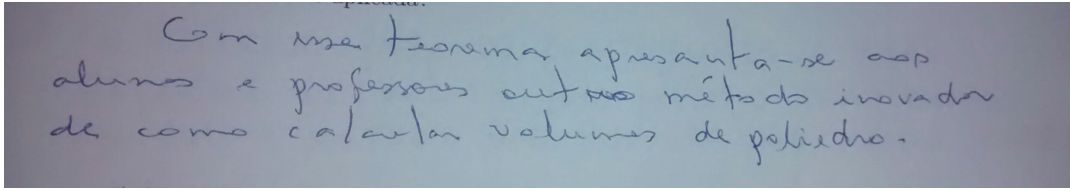 Com isse teorema apresenta-se aos
alunos e professores outro método inovador
de como calcular volumes de poliedro.